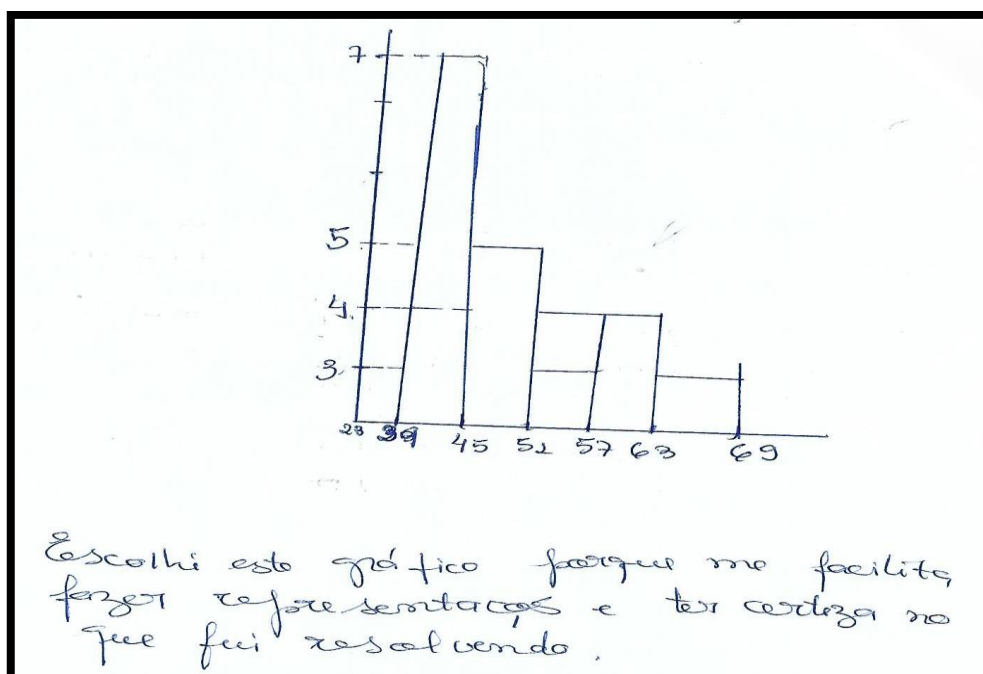 7
5
4
3
23 39 45 51 57 63 69
Escolhi este gráfico porque me facilita
fazer representaços e ter certeza no
que fui resolvendo.